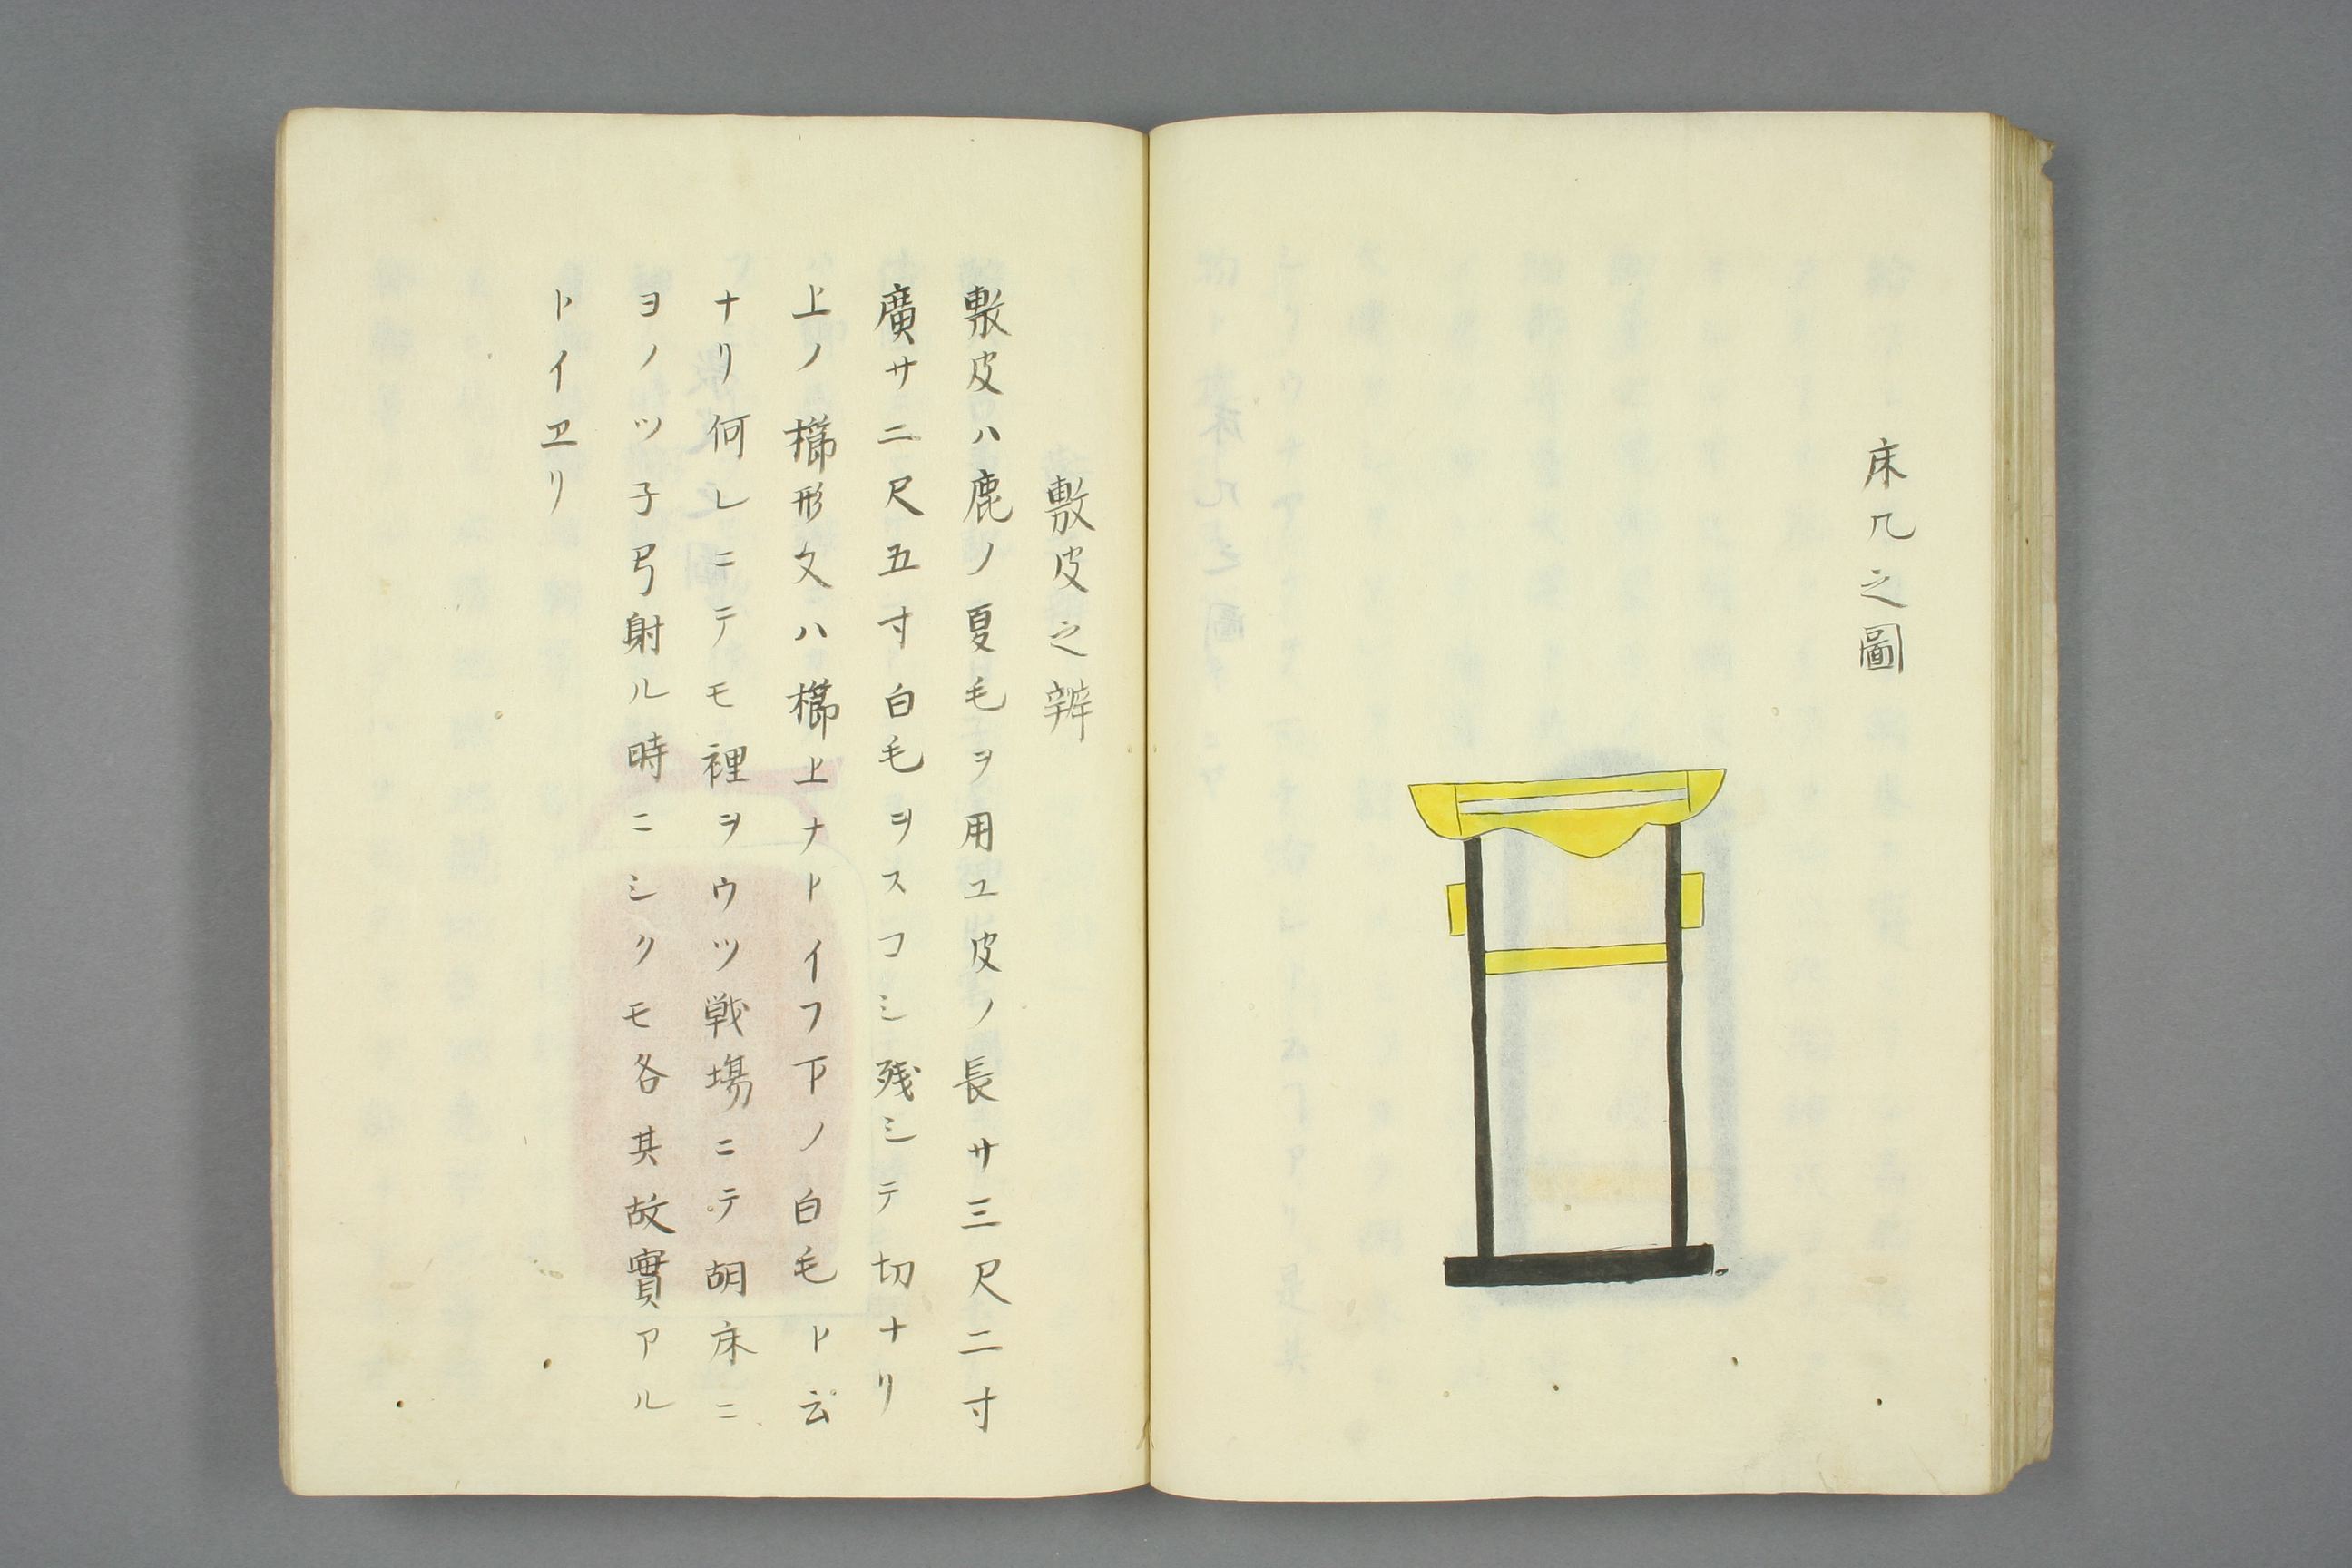 床几之圖
敷皮之辨
敷皮ハ鹿ノ夏毛ヲ用ユ皮ノ長サ三尺二寸
廣サ二尺五寸白毛ヲスコシ残シテ切ナリ
上ノ櫛形文ハ櫛上ナトイフ下ノ白毛ト云
ナリ何レニテモ裡ヲウツ戦場ニテ胡床ニ
ヨノツ子弓射ル時ニシクモ各其故實アル
トイヱリ